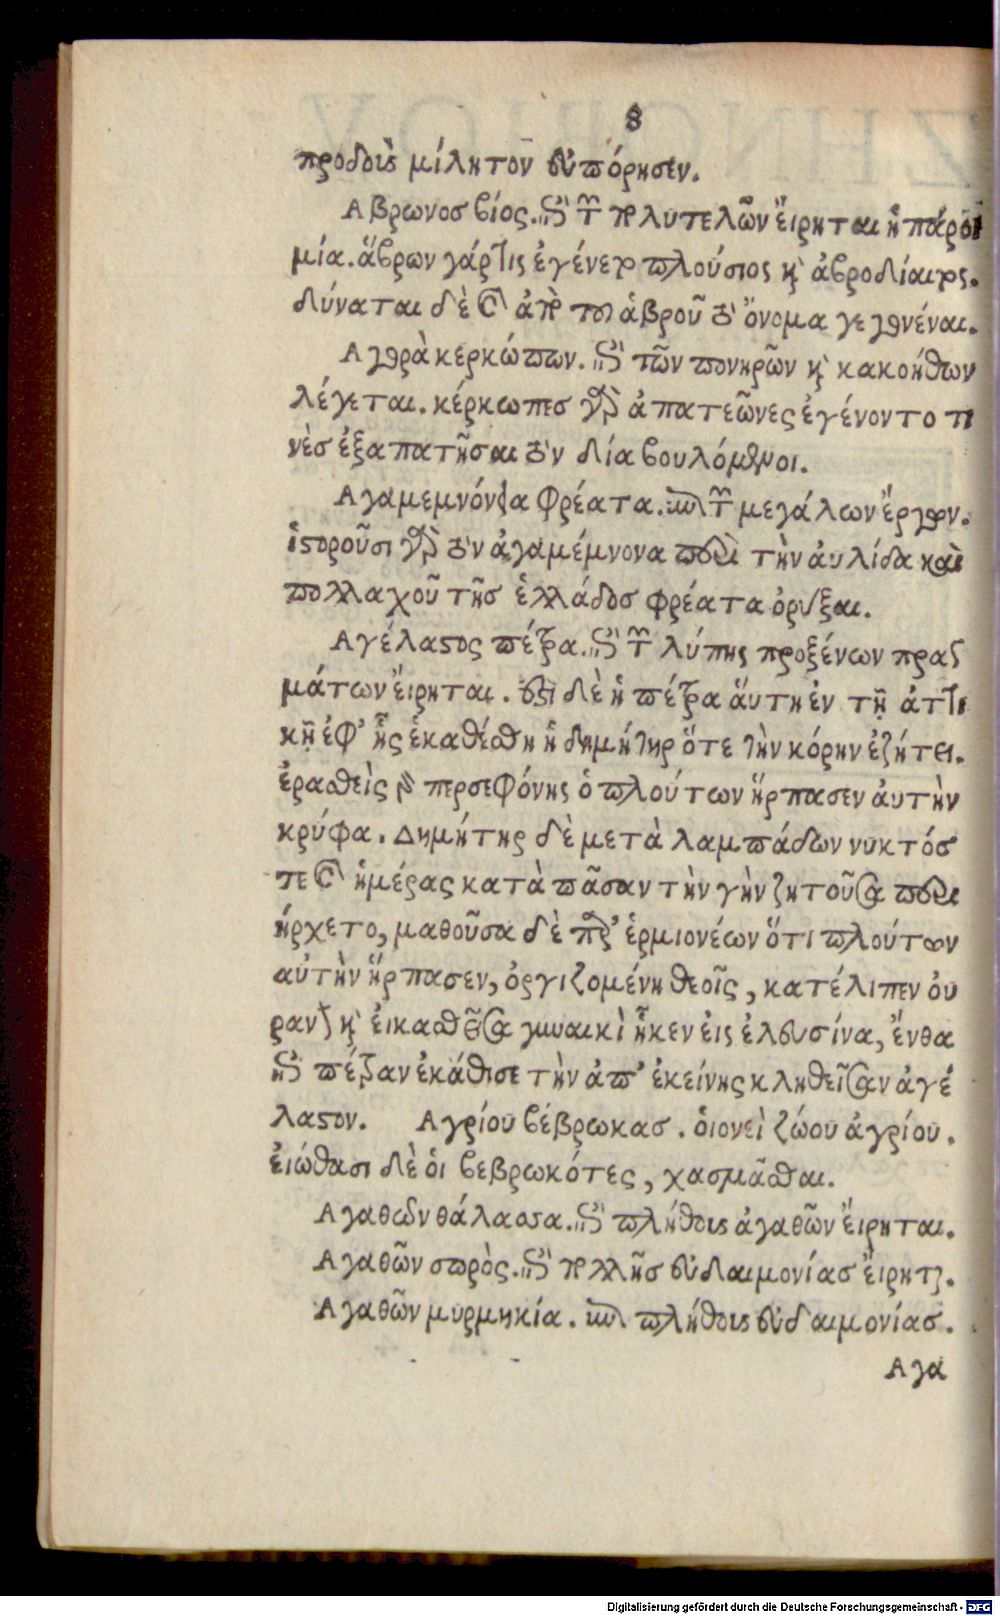 8
προδοὺς μίλητον εὐπόρησεν.
Αβρωνοσ βίος. ἐπὶ τῶν πολυτελῶν ἔιρηται ἡ παροι
μία. ἄβρων γάρ τις ἐγένετο πλούσιος κὶ ἁβροδίαιτος.
δύναται δὲ καὶ ἀπὸ του ἁβροῦ τὸ ὄνομα γεγονέναι.
Αγορὰ κερκώπων. ἐπὶ τῶν πονηρῶν κὶ κακοήθων
λέγεται. κέρκωπεσ γὰρ ἀπατεῶνες ἐγένοντο τι
νὲσ ἐξαπατῆσαι τὸν δία βουλόμενοι.
Αγαμεμνόνεια φρέατα. ἐπὶ τῶν μεγάλων ἔργων.
ἱστοροῦσι γὰρ τὸν ἀγαμέμνονα περὶ τὴν ἀυλίδα καὶ
πολλαχοῦ τῆσ ἑλλάδοσ φρέατα ὀρύξαι.
Αγέλαστος πέτρα. ἐπὶ τῶν λύπης προξένων πραγ
μάτων ἔιρηται. ἐστι δὲ ἡ πέτρα ἅυτη ἐν τῇ ἀττι
κῇ ἐφ' ἧς ἐκαθέσθη ἡ δημήτηρ ὅτε τὴν κόρην ἐζήτει.
ἐρασθεὶς γὰρ περσεφόνης ὁ πλούτων ἥρπασεν ἀυτὴν
κρύφα. Δημήτης δὲ μετὰ λαμπάδων νυκτόσ
τε καὶ ἡμέρας κατὰ πᾶσαν τὴν γὴν ζητοῦσα περι
ήρχετο, μαθοῦσα δὲ παρ' ἑρμιονέων ὅτι πλούτων
αὐτὴν ἥρπασεν, ὀργιζομένη θεοῖς, κατέλιπεν ὀυ
ρανὸν κὶ ἐικασθεῖσα γυναικὶ ἧκεν ἐις ἐλευσίνα, ἔνθα
ἐπὶ πέτραν ἐκάθισε τὴν ἀπ' ἐκείνης κληθεῖσαν ἀγέ
λαστον. Αγρίου βέβρωκασ. ὁιονεὶ ζώου ἀγρίου.
ἐιώθασι δὲ ὁι βεβρωκότες, χασμᾶσθαι.
Αγαθων θάλασσα. ἐπὶ πλήθους ἀγαθῶν ἔιρηται.
Αγαθῶν σωρὸς. ἐπὶ πολλῆσ εὐδαιμονίασ ἔιρηται.
Αγαθῶν μυρμηκία. ἐπὶ πλήθους εὐδαιμονίασ.
Αγα
Digitalisierung gefördert durch die Deutsche Forschungsgemeinschaft - DFG